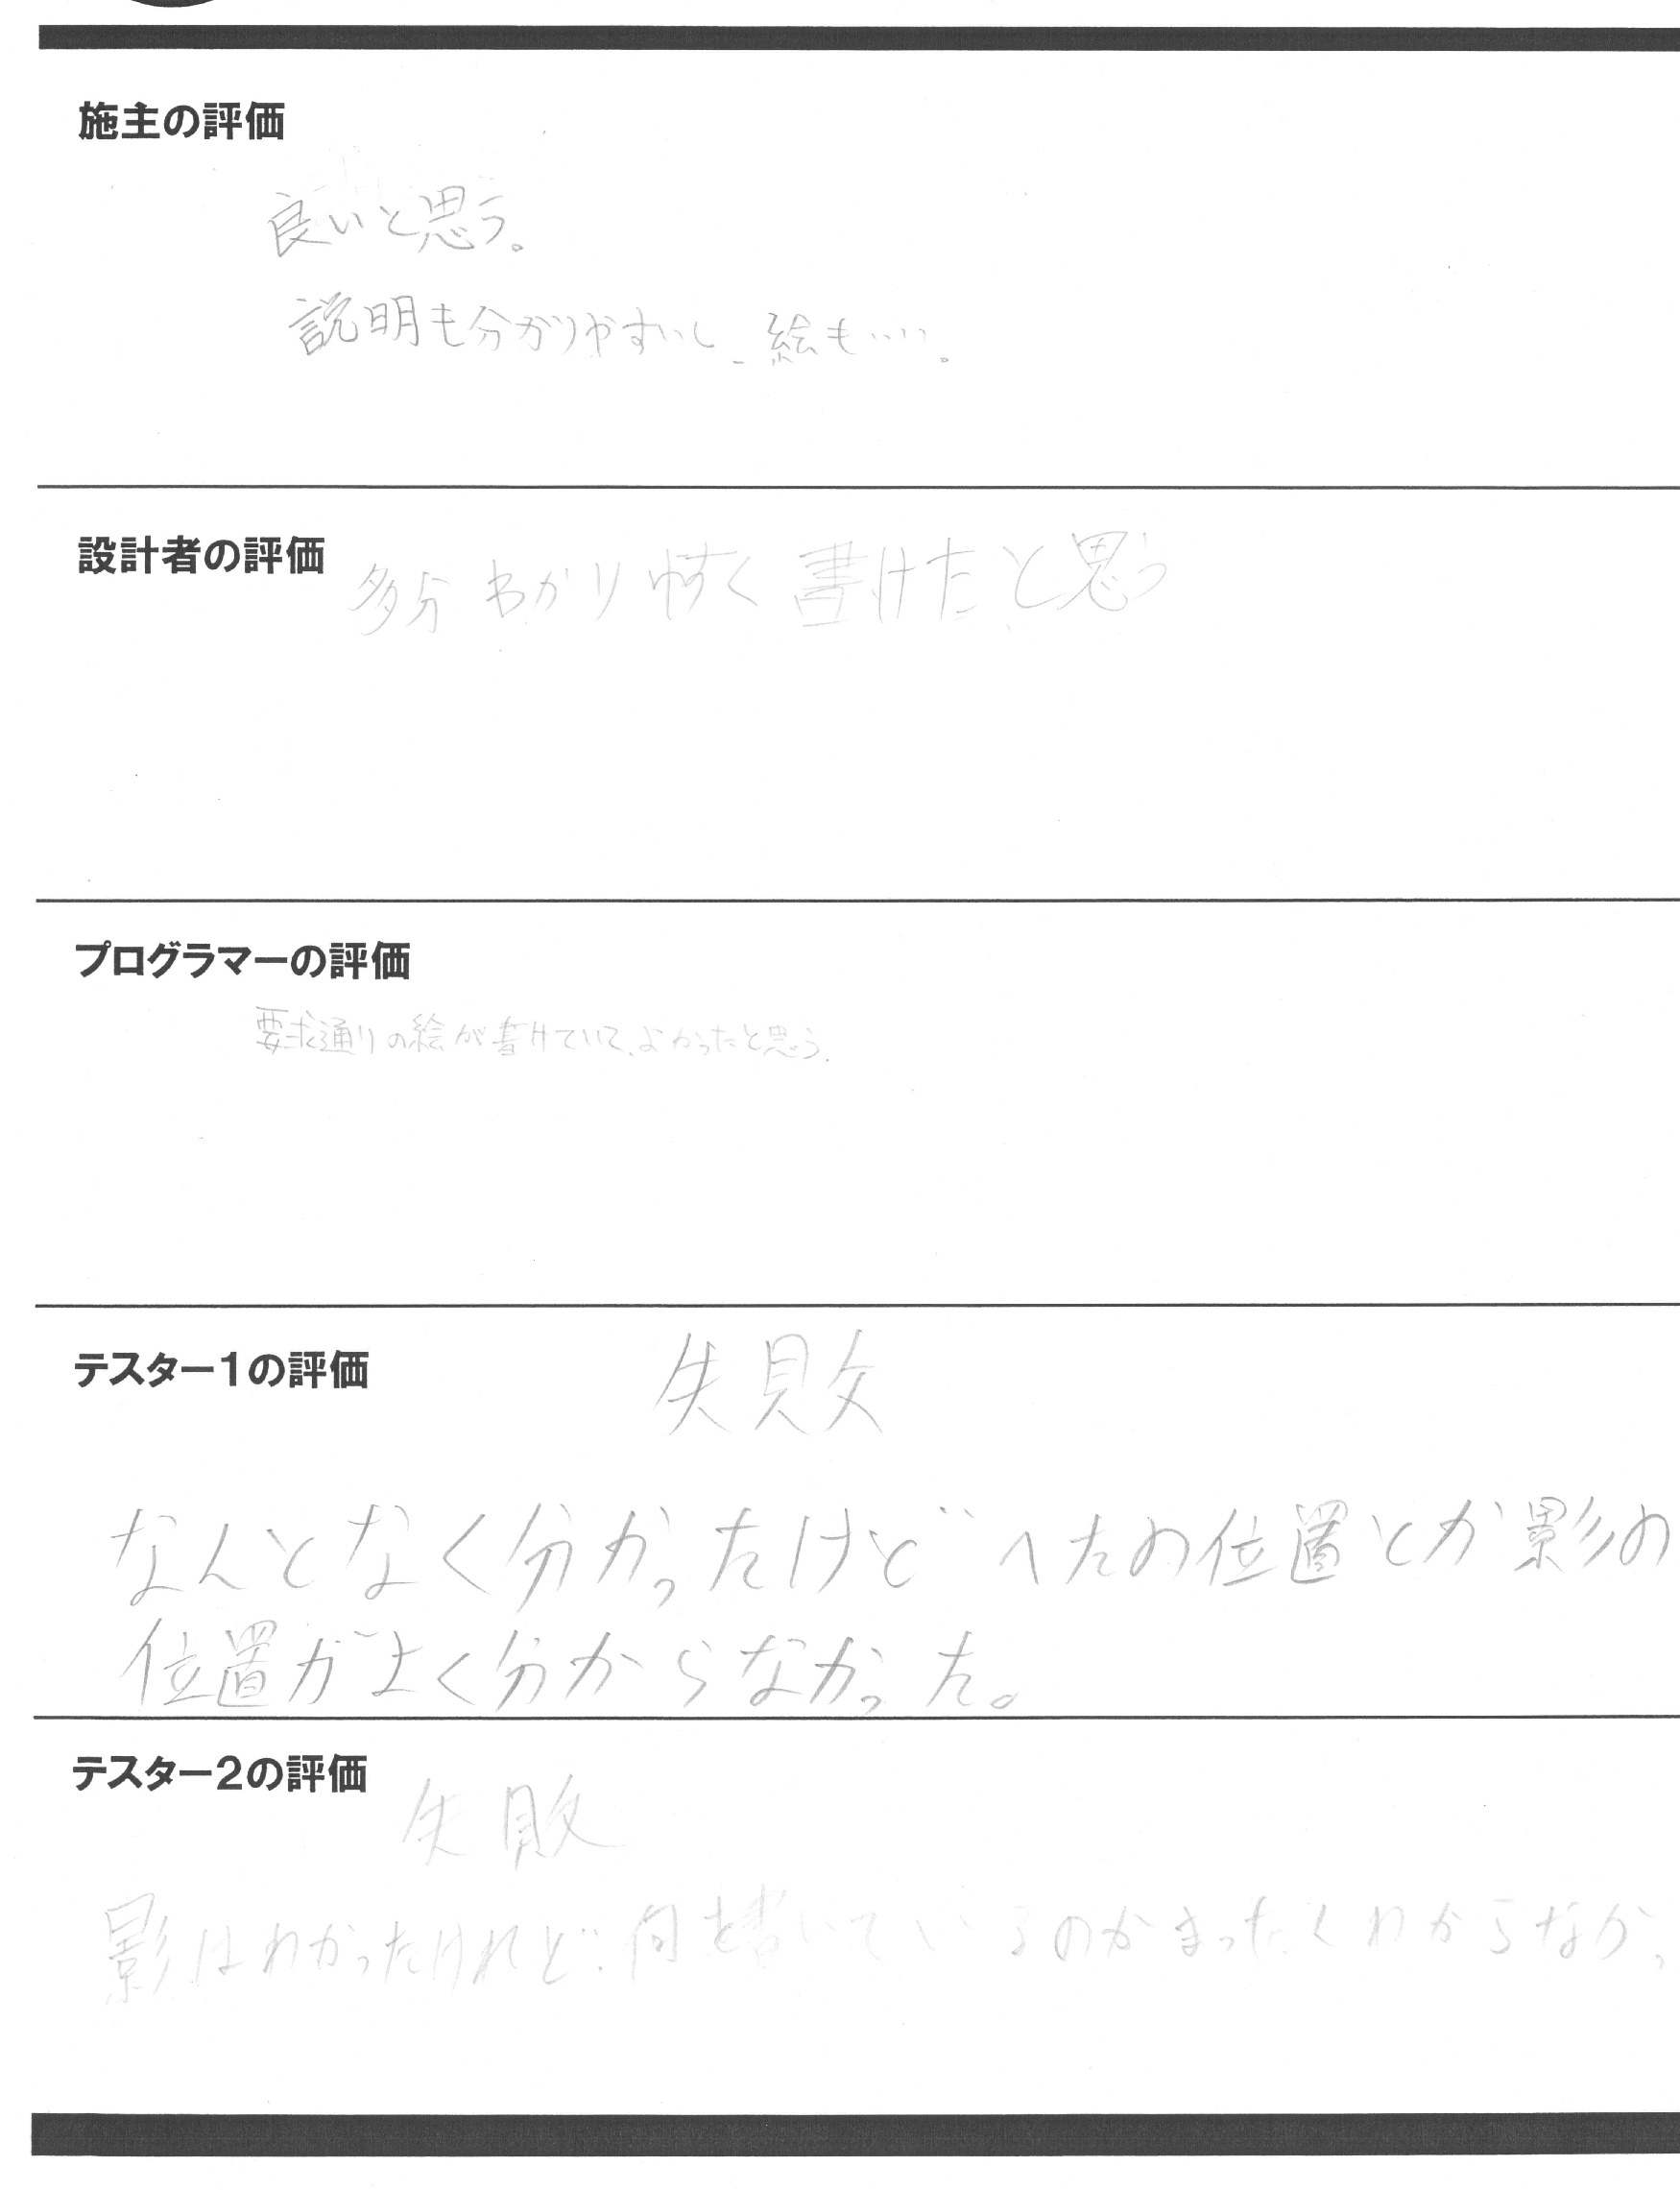 施主の評価
良いと思う。
説明も分かりやすいし、絵も……。
設計者の評価
多分わかりやすく書けたと思う
プログラマーの評価
要求通りの絵が書けていて、よかったと思う。
テスター1の評価
失敗
なんとなく分かったけど へたの位置とか影の
位置がよく分からなかった。
テスター2の評価
失敗
影はわかったけれど、何を書いているのかまったくわからなかっ